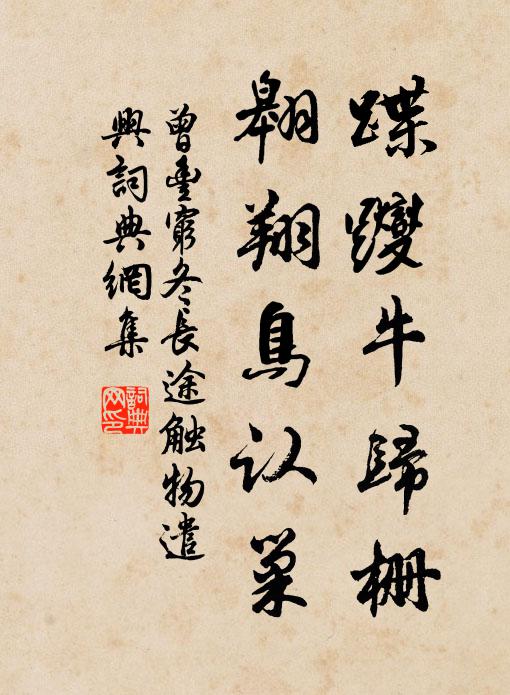 蹀躞牛歸栅
翱翔鳥认巢
曾豊穷冬長途触物遣
興詞典網集
詞典网印